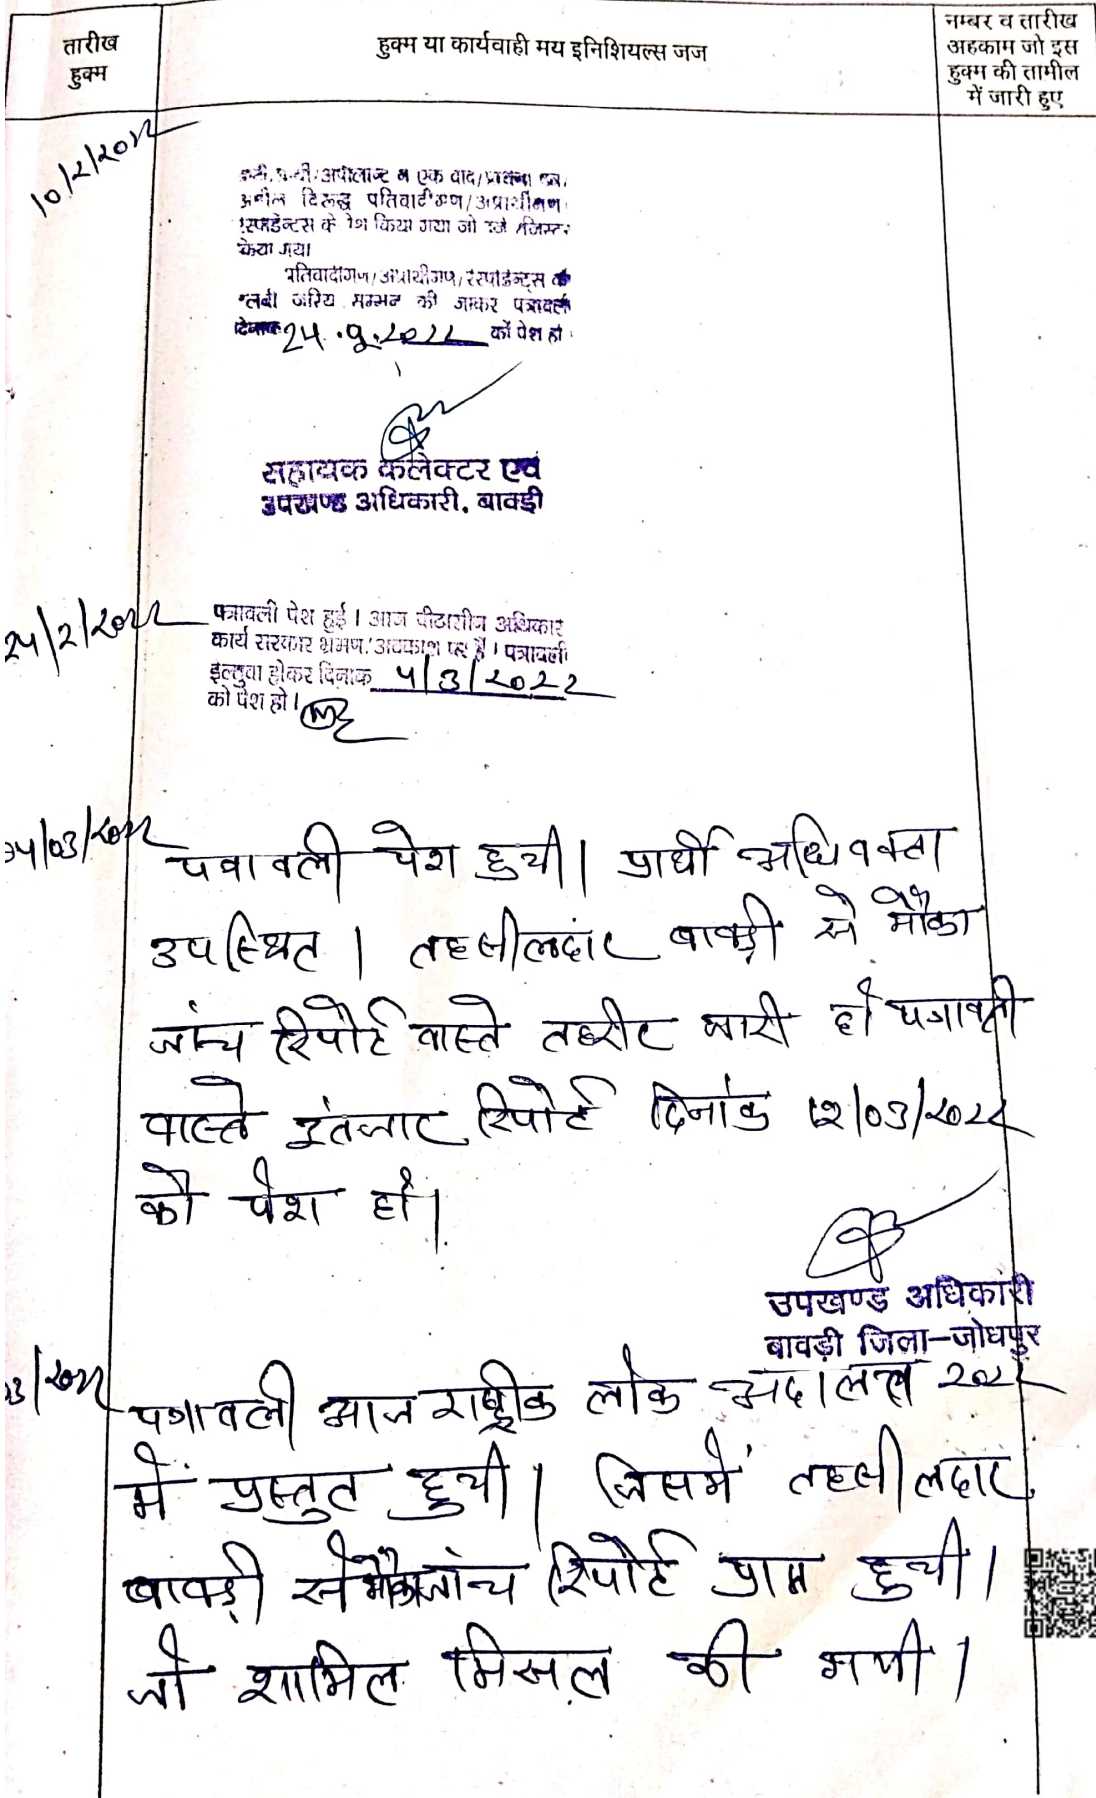 तारीख
हुक्म
हुक्म या कार्यवाही मय इनिशियल्स जज
नम्बर व तारीख
अहकाम जो इस
हुक्म की तामील
में जारी हुए
10/2/2022
अपीलान्ट एक वाद/प्रार्थना पत्र/
अपील विरूद्ध प्रतिवादीगण/अप्रार्थीगण/
रेस्पोडेन्टस के पेश किया गया जो दर्ज रजिस्टर
किया गया।
प्रतिवादीगण/अप्रार्थीगण/रेस्पोडेन्ट्स की
तलबी जरिये सम्मन की जाकर पत्रावली
दिनांक 24.2.2022 को पेश हो।
सहायक कलेक्टर एवं
उपखण्ड अधिकारी, बावड़ी
24/2/2022
पत्रावली पेश हुई। आज पीठासीन अधिकारी
कार्य सरकार भ्रमण/अवकाश पर है। पत्रावली
ईल्तुवा होकर दिनांक 4/3/2022
को पेश हो।
04/03/2022
पत्रावली पेश हुयी। प्रार्थी अधिवक्ता
उपस्थित। तहसीलदार बावड़ी से मौका
जांच रिपोर्ट वास्ते तहरीर जारी हो पत्रावली
वास्ते इंतजार रिपोर्ट दिनांक 12/03/2022
को पेश हो।
उपखण्ड अधिकारी
बावड़ी जिला-जोधपुर
03/2022
पत्रावली आज राष्ट्रीक लोक अदालत 2022
में प्रस्तुत हुयी। जिसमें तहसीलदार
बावड़ी से मौका जांच रिपोर्ट प्राप्त हुयी।
जो शामिल मिसल की गयी।